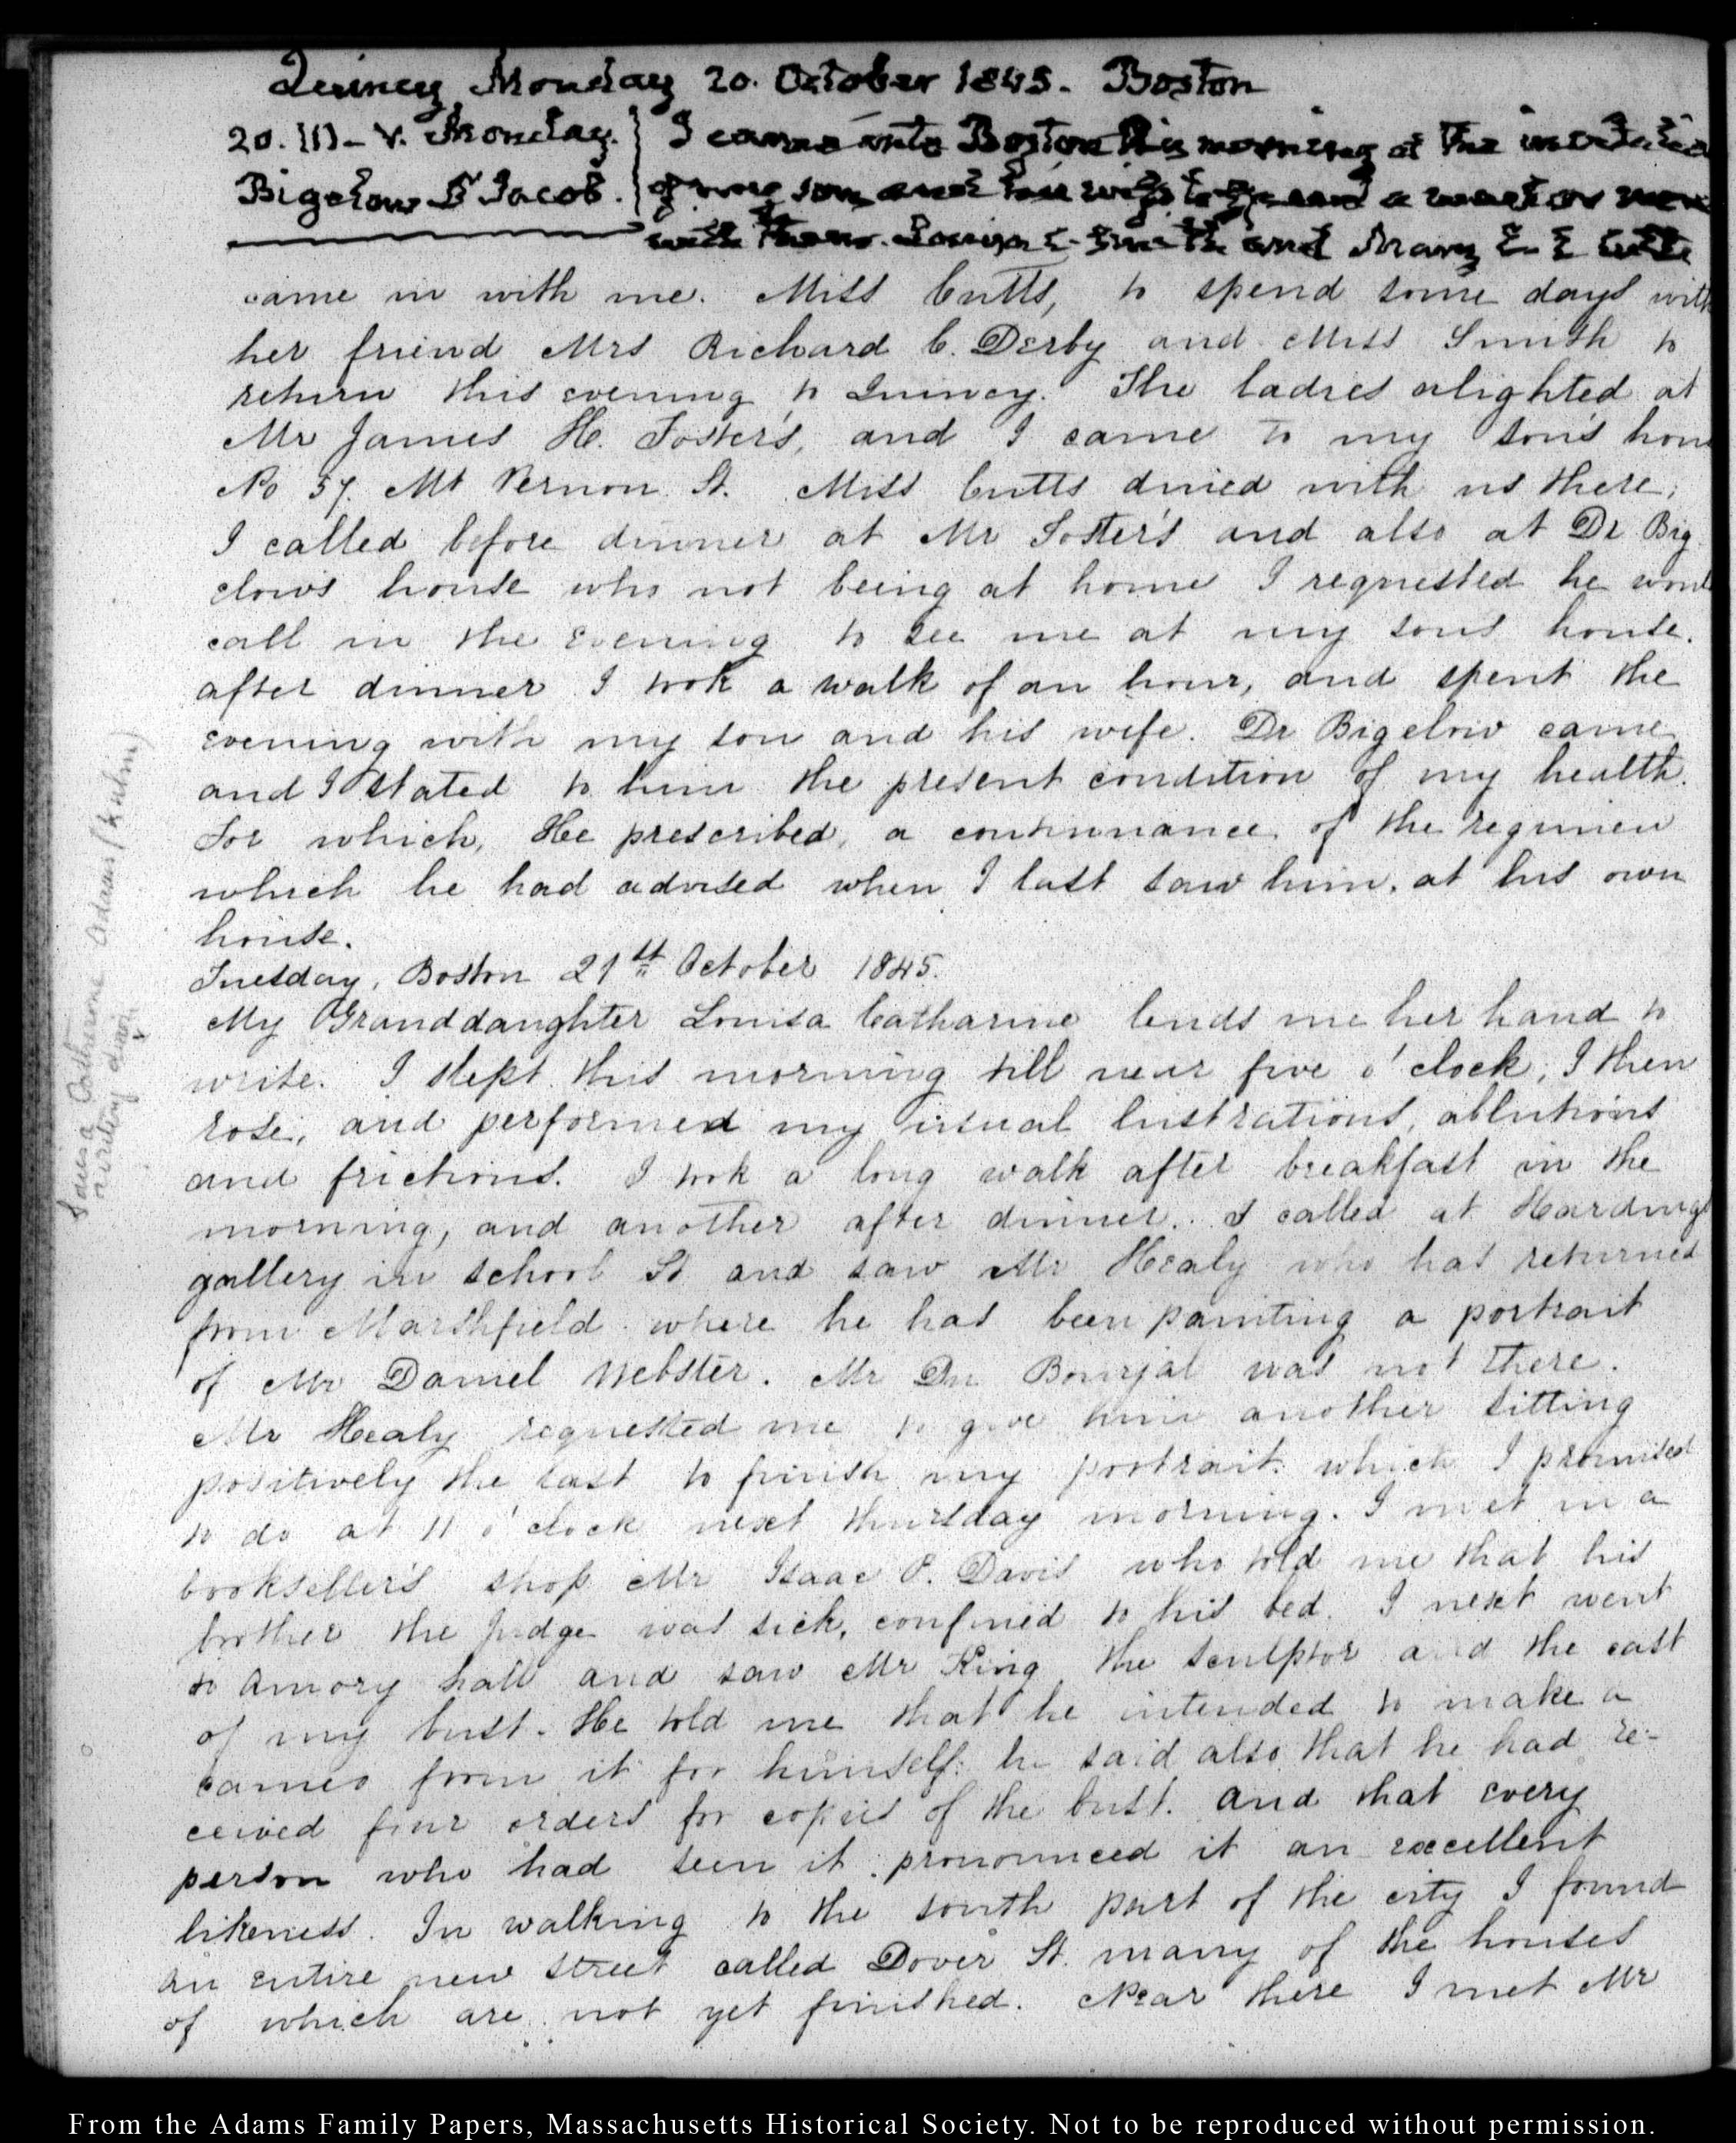 Quincy Monday 20. October 1845. Boston
20. III– V. Monday.
Bigelow D Jacob.
I came into Boston this morning at the invitation
of my son and his wife to spend a week or more
with them. Louisa C. Smith and Mary E. E Cutts
came in with me. Miss Cutts, to spend some days with
her friend Mrs Richard C. Derby and Miss Smith to
return this evening to Quincy. The ladies alighted at
Mr James H. Foster's, and I came to my son's hous
No 57. Mt Vernon St. Miss Cutts dined with us there;
I called before dinner at Mr Foster's and also at Dr Big
elows house who not being at home I requested he would
call in the evening to see me at my sons house.
after dinner I took a walk of an hour, and spent the
evening with my son and his wife. Dr Bigelow came
and I stated to him the present condition of my health.
For which, He prescribed, a continuance of the regimen
which he had advised when I last saw him, at his own
house.
Tuesday, Boston 21st October 1845.
My Granddaughter Louisa Catharine lends me her hand to
write. I slept this morning till near five o'clock, I then
rose, and performed my usual lustrations, ablutions
and frictions. I took a long walk after breakfast in the
morning, and another after dinner. I called at Hardings
gallery in school St and saw Mr Healy who has returned
from Marshfield where he has been painting a portrait
of Mr Daniel Webster. Mr Du Bourjal was not there.
Mr Healy requested me to give him another sitting
positively the last to finish my portrait. which I promised
to do at 11 o'clock next thursday morning. I met in a
bookseller's shop Mr Isaac P. Davis who told me that his
brother the Judge was sick, confined to his bed. I next went
to Amory hall and saw Mr King the sculptor and the cast
of my bust. He told me that he intended to make a
cameo from it for himself: he said also that he had re-
ceived four orders for copies of the bust. and that every
person who had seen it pronounced it an excellent
likeness. In walking to the south part of the city I found
an entire new street called Dover St. many of the houses
of which are not yet finished. Near there I met Mr
Louisa Catherine Adams (Kuhn)
writing down
From the Adams Family Papers, Massachusetts Historical Society. Not to be reproduced without permission.